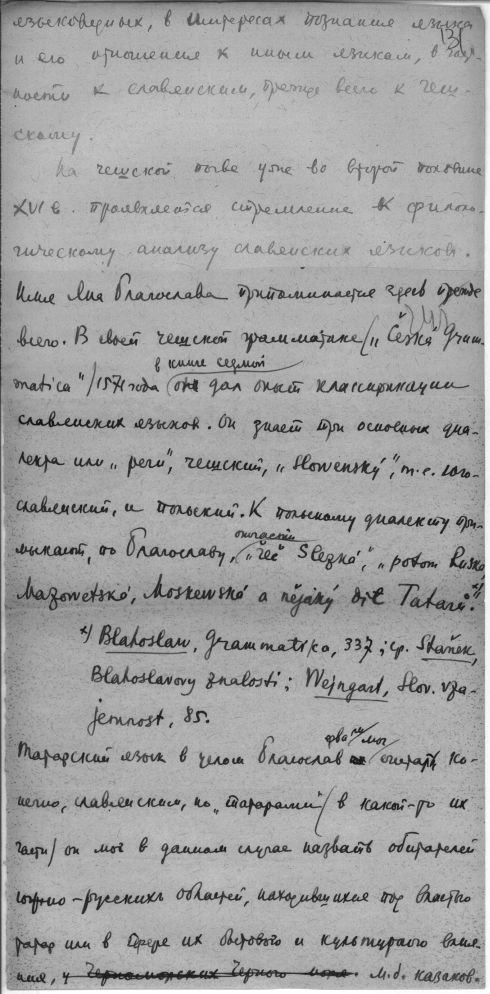 языковедных, в интересах познания языка
и его отношения к иным языкам, в част-
ности к славянским, прежде всего к чеш-
скому.
На чешской почве уже во второй половине
XVI в. проявляется стремление к филоло-
гическому анализу славянских языков.
Имя Яна Благослава припоминается здесь прежде
всего. В своей чешской грамматике („Česká Gram-
matica"/1571 года в книге седмой он дал опыт классификации
славянских языков. Он знает три основных диа-
лекта или „речи", чешский, „Slowenský", т.е. юго-
славянский, и польский. К польскому диалекту при-
мыкают, по Благославу, отчасти „řeč Slezká", „potom Ruská
Mazowetská, Moskewská a nějaký díl Tatarů". *)
*) Blahoslaw, Grammatika, 337; ср. Staněk,
Blahoslavovy znalosti; Wejngart, Slov. vzá-
jemnost, 85.
Татарский язык в целом Благослав едва ли мог считать ко-
нечно, славянским, но „татарами" (в какой-то их
части) он мог в данном случае назвать обитателей
южно-русских областей, находившихся под властью
татар или в сфере их бытового и культурного влия-
ния, у Черноморских Черного моря. М.б. казаков.